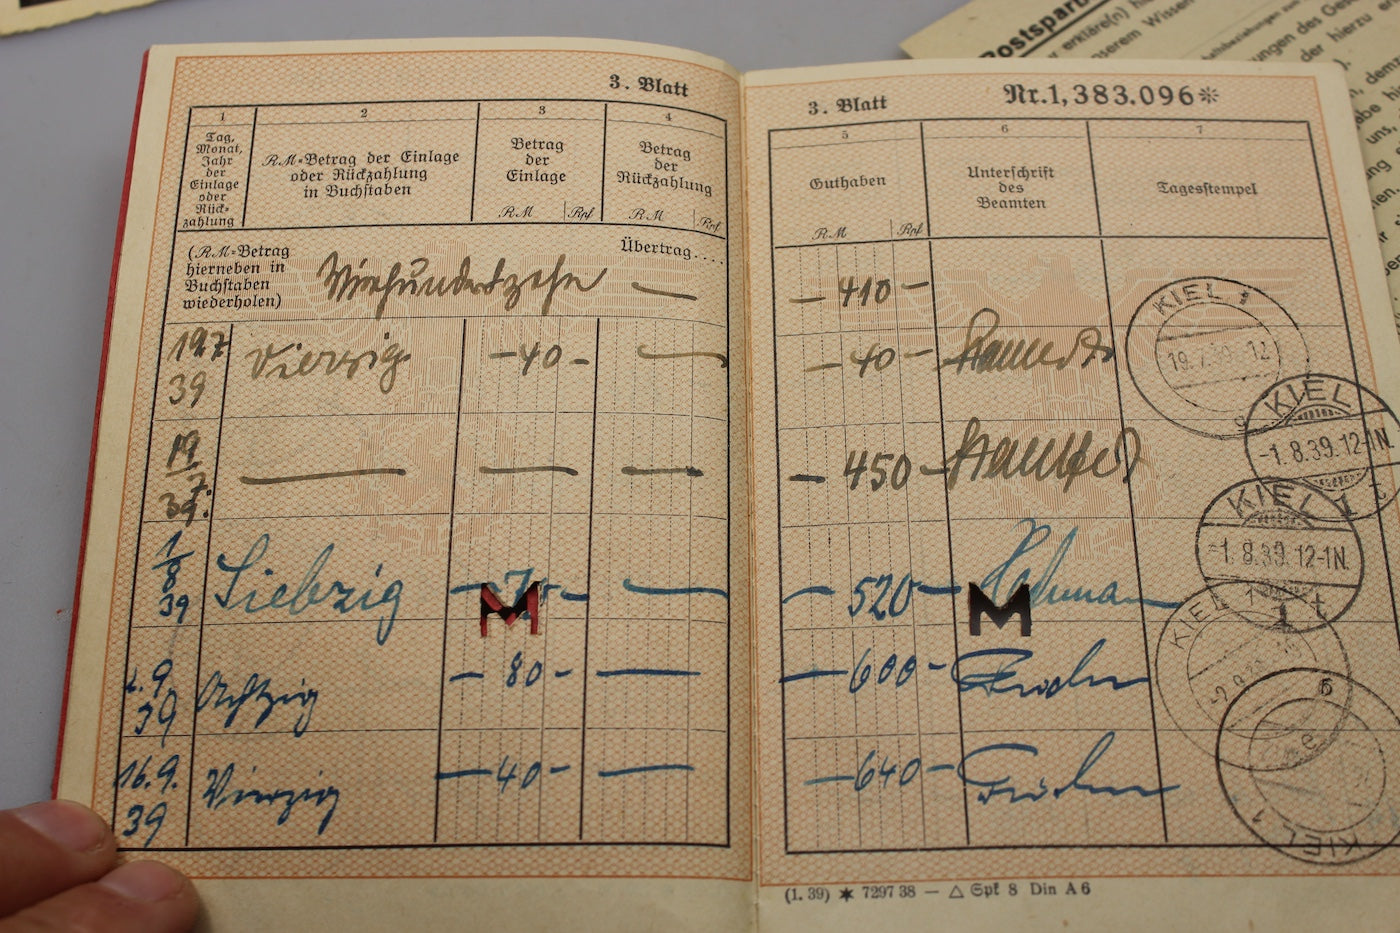 3. Blatt
1 2 3 4
Tag,
Monat,
Jahr
der
Einlage
oder
Rück-
zahlung
RM-Betrag der Einlage
oder Rückzahlung
in Buchstaben
Betrag
der
Einlage
RM Rpf
Betrag
der
Rückzahlung
RM Rpf
(RM-Betrag
hierneben in
Buchstaben
wiederholen)
Vierhundertzehn —
Übertrag....
19 7 39 Vierzig — 40 — —
19 7 39. — — —
1 8 39 Siebzig — 70 — —
2.9 39 Achtzig — 80 — —
16.9. 39 Vierzig — 40 — —
M
3. Blatt Nr.1,383.096*
5 6 7
Guthaben
RM Rpf
Unterschrift
des
Beamten
Tagesstempel
— 410 —
— 40 —
— 450 —
— 520 —
— 600 —
— 640 —
M
KIEL 1
19.7. 12
g
KIEL 1
-1.8.39.12-1N.
t
KIEL 1
-1.8.39.12-1N.
t
KIEL 1
-2.9
6
e
KIEL 1
(1. 39) ✶ 7297 38 — △ Spf 8 Din A 6
Postsparb
erkläre(n) hi
nserem Wissen
ungen des Ges
der hierzu e
demz
uns,